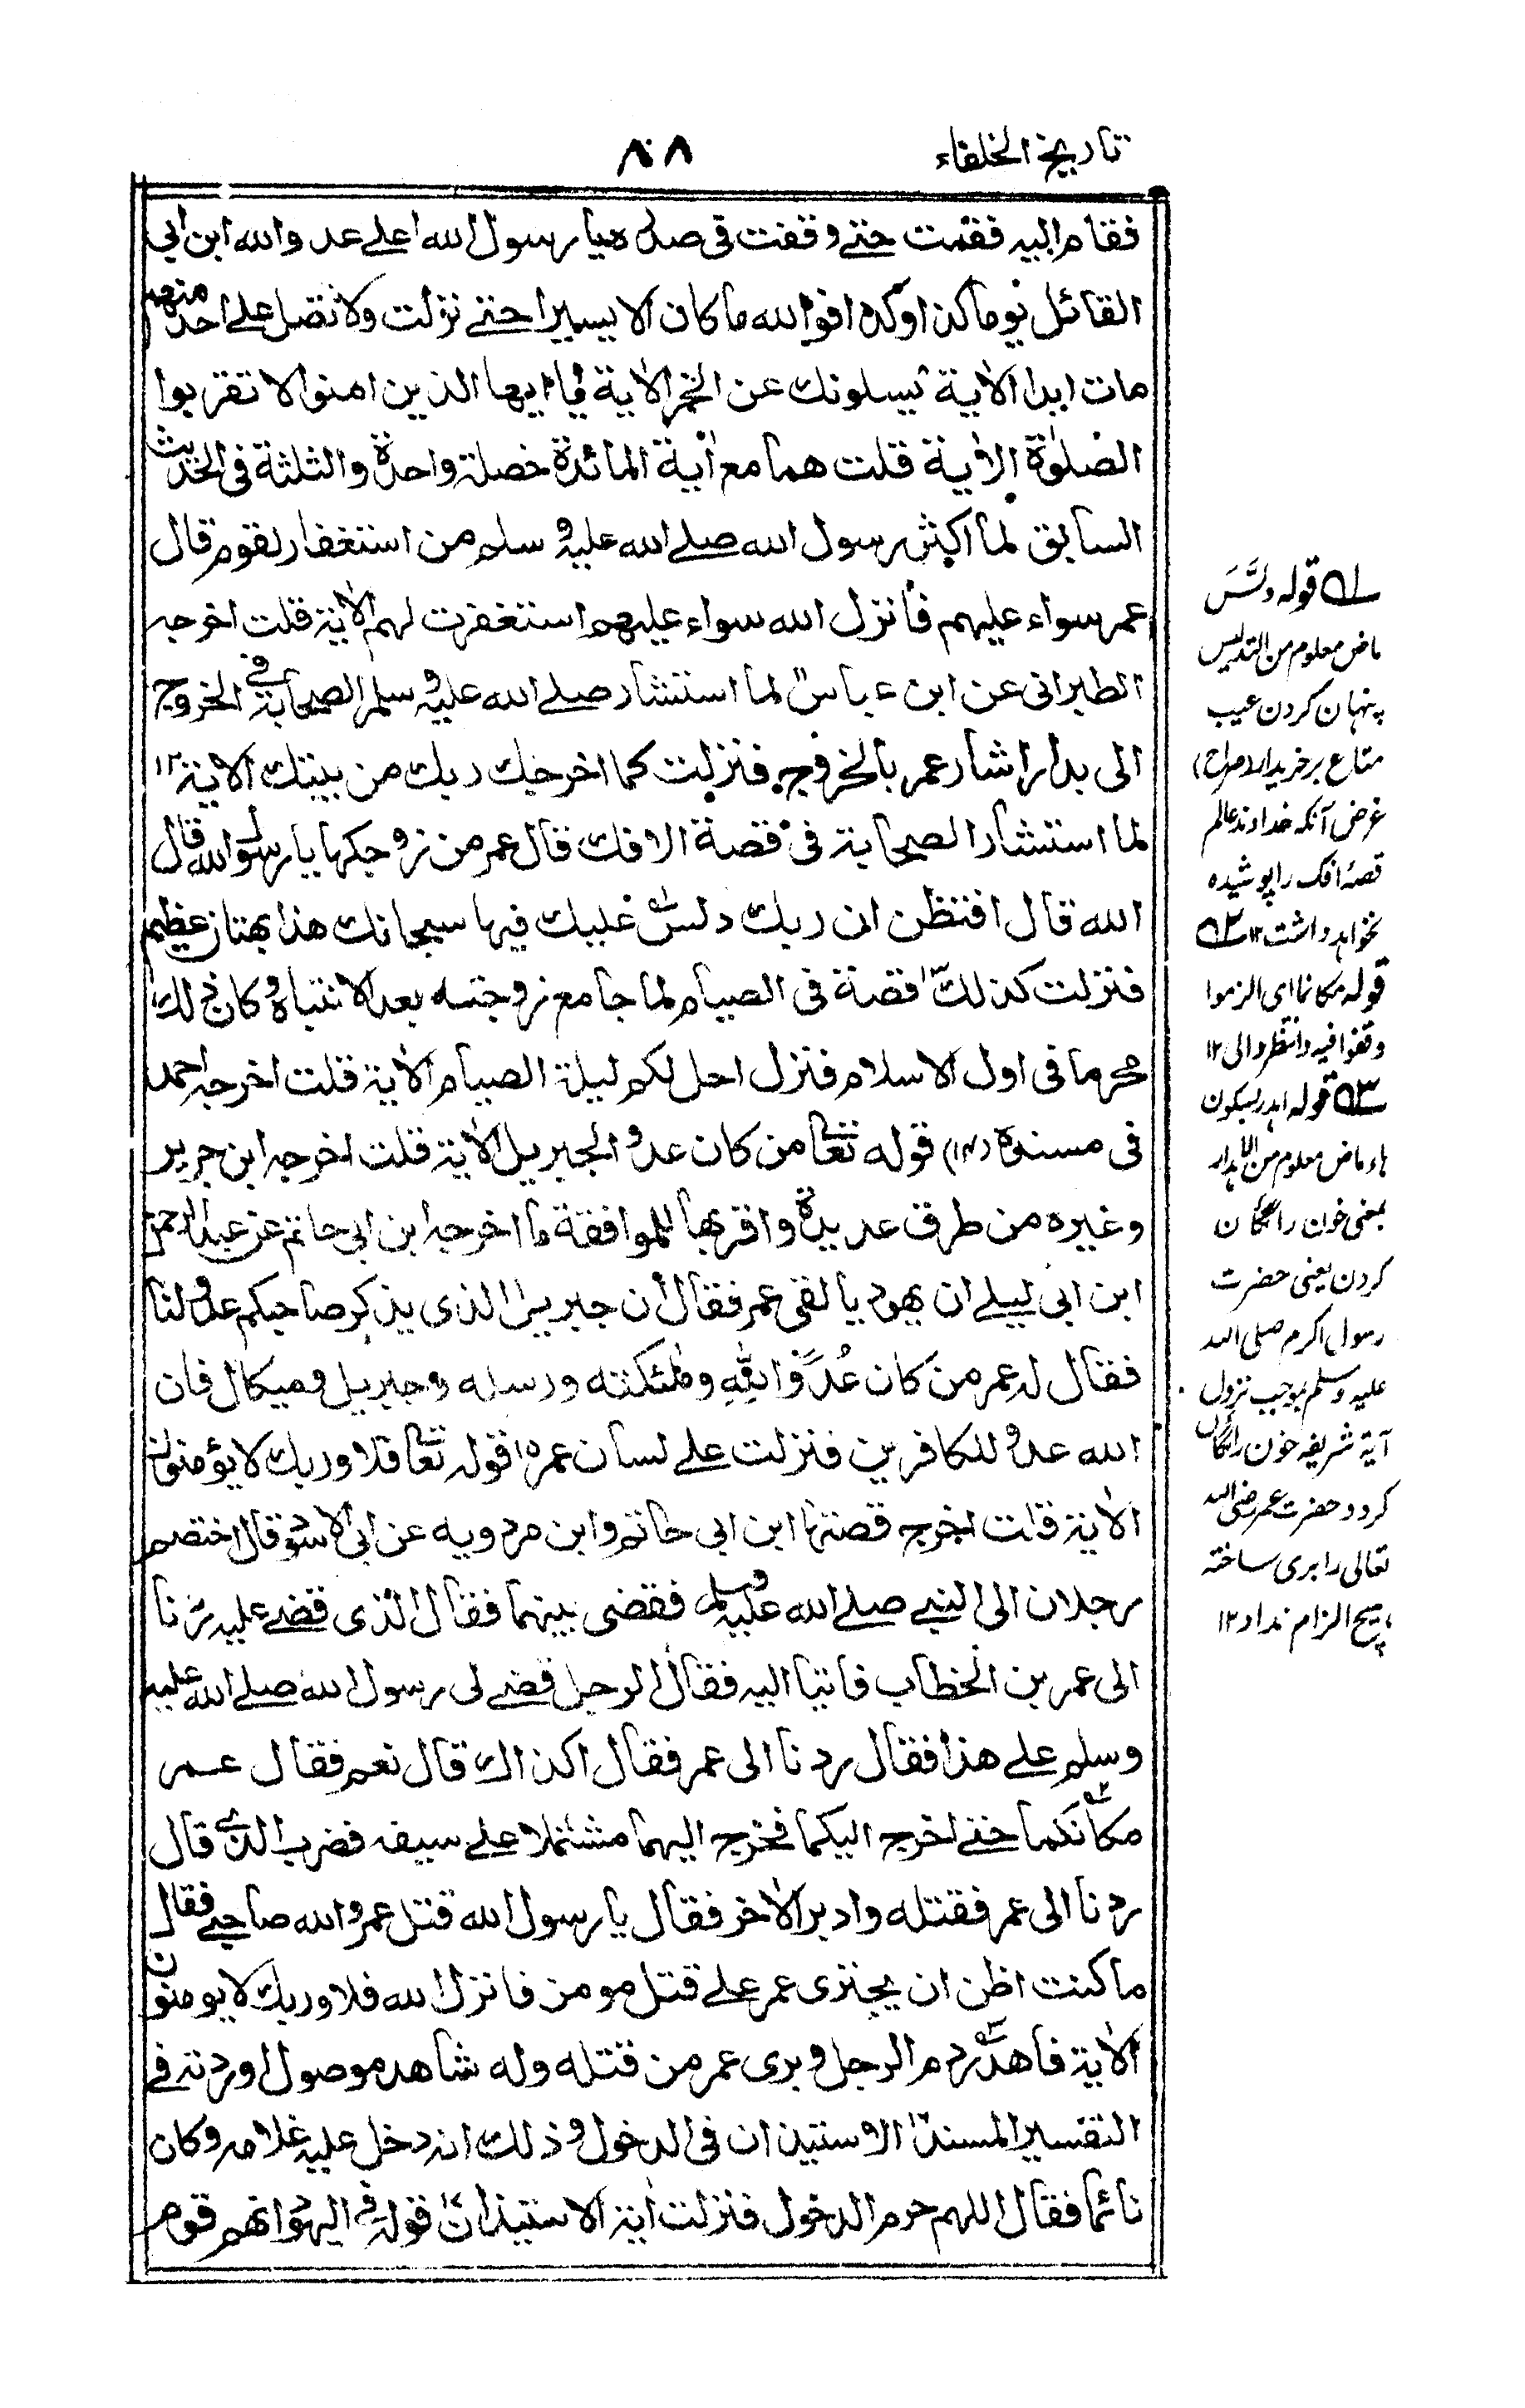 تاريخ الخلفاء
٨٨
فقام اليه فقمت حتى وقفت فى صدره يا رسول الله اعلى عدو الله ابن ابى
القائل يوما كذا وكذا فوالله ما كان الا يسيرا حتى نزلت ولا تصل على احد منهم
مات ابدا الاية ٨ يسلونك عن الخمر الاية ٩ يا ايها الذين امنوا لا تقربوا
الصلوة الاية قلت هما مع اية المائدة خصلة واحدة والثلثة فى الحديث
السابق ١٠ لما اكثر رسول الله صلے الله عليه وسلم من استغفار لقوم قال
عمر سواء عليهم فانزل الله سواء عليهم استغفرت لهم الاية قلت اخرجه
الطبرانى عن ابن عباس ١١ لما استشار صلے الله عليه وسلم الصحابة فى الخروج
الى بدر اشار عمر بالخروج فنزلت كما اخرجك ربك من بيتك الاية ١٢
لما استشار الصحابة فى قصة الافك قال عمر من زوجكها يا رسول الله قال
الله قال افتظن ان ربك دلس عليك فيها سبحانك هذا بهتان عظيم
فنزلت كذلك ١٣ قصة فى الصيام لما جامع زوجته بعد الانتباه وكان ذلك
محرما فى اول الاسلام فنزل احل لكم ليلة الصيام الاية قلت اخرجه احمد
فى مسنده (١٤) قوله تعا من كان عدوا لجبريل الاية قلت اخرجه ابن جرير
وغيره من طرق عديدة واقربها للموافقة ما اخرجه ابن ابى حاتم عن عبد الرحمن
ابن ابى ليلے ان يهوديا لقى عمر فقال ان جبريل الذى يذكر صاحبكم عدو لنا
فقال له عمر من كان عُدَوًّا لِلّٰهِ وملٰئكته ورسله وجبريل وميكال فان
الله عدو للكافرين فنزلت علے لسان عمر ١٥ قوله تعا فلا وربك لا يؤمنون
الاية قلت اخرج قصتها ابن ابى حاتم وابن مردويه عن ابى الاسود قال اختصم
رجلان الى النبے صلے الله عليه وسلم فقضى بينهما فقال الذى قضے عليه ردنا
الى عمر بن الخطاب فاتيا اليه فقال الرجل قضے لى رسول الله صلے الله عليه
وسلم علے هذا فقال ردنا الى عمر فقال اكذاك قال نعم فقال عمر
مكانكما حتے اخرج اليكما فخرج اليهما مشتملا علے سيفه فضرب الذى قال
ردنا الى عمر فقتله وادبر الاخر فقال يا رسول الله قتل عمر والله صاحبے فقال
ما كنت اظن ان يجترى عمر علے قتل مومن فانزل الله فلا وربك لا يومنون
الاية فاهدر دم الرجل وبرى عمر من قتله وله شاهد موصول اوردته فے
التفسير المسند ١٦ الاستيذان فى الدخول وذلك انه دخل عليه غلامه وكان
نائما فقال اللهم حرم الدخول فنزلت اية الاستيذان ١٧ قوله فى اليهود انهم قوم
؎١ قوله دلَّسَ
ماض معلوم من التدليس
پنهان كردن عيب
متاع بر خريدار (صراح)
غرض آنكه خداوند عالم
قصهٔ افك را پوشيده
نخواهد داشت ١٢ ؎٢
قوله مكانكما اى الزموا
وقفوا فيه وانتظروا لى ١٢
؎٣ قوله اهدر بسكون
هاء ماض معلوم من الاهدار
بمعنى خون رائگان
كردن يعنى حضرت
رسول اكرم صلى الله
عليه وسلم بموجب نزول
آية شريفه خون رائگان
كرد و حضرت عمر رضى الله
تعالى را برى ساخته
هيچ الزام نداد ١٢